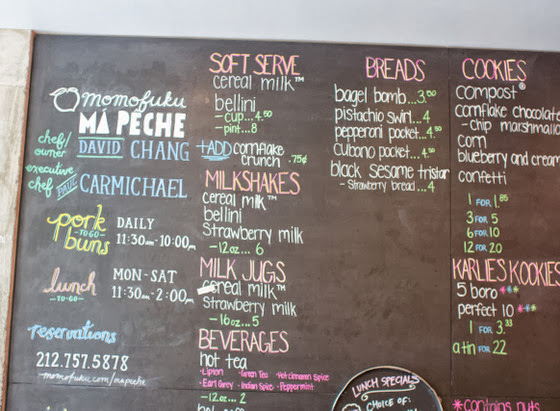 momofuku
MÁ PÊCHE
chef/
owner
DAVID CHANG
executive
chef PAUL CARMICHAEL
pork
TO GO
buns
DAILY
11:30am-10:00pm
lunch
-TO-GO-
MON-SAT
11:30am-2:00pm
reservations
212.757.5878
momofuku.com/mapeche
SOFT SERVE
cereal milk™
bellini
-cup...4.50
-pint...8
+ADD cornflake
crunch .75¢
MILKSHAKES
cereal milk™
bellini
Strawberry milk
-12oz... 6
MILK JUGS
cereal milk™
Strawberry milk
-16oz...5
BEVERAGES
hot tea
-Lipton -Green Tea -Hot cinnamon Spice
-Earl Grey -Indian Spice -Peppermint
-12oz... 2
BREADS
bagel bomb...3.00
pistachio swirl...4
pepperoni pocket...4.50
cubano pocket...4.50
black sesame tristar
- Strawberry bread...4
COOKIES
compost®
cornflake chocolate
-chip marshma
corn
blueberry and cream
confetti
1 FOR 1.85
3 FOR 5
6 FOR 10
12 FOR 20
KARLIES KOOKIES
5 boro ***
perfect 10 ***
1 FOR 3.33
a tin FOR 22
*contains nuts
LUNCH SPECIALS
CHOICE OF: